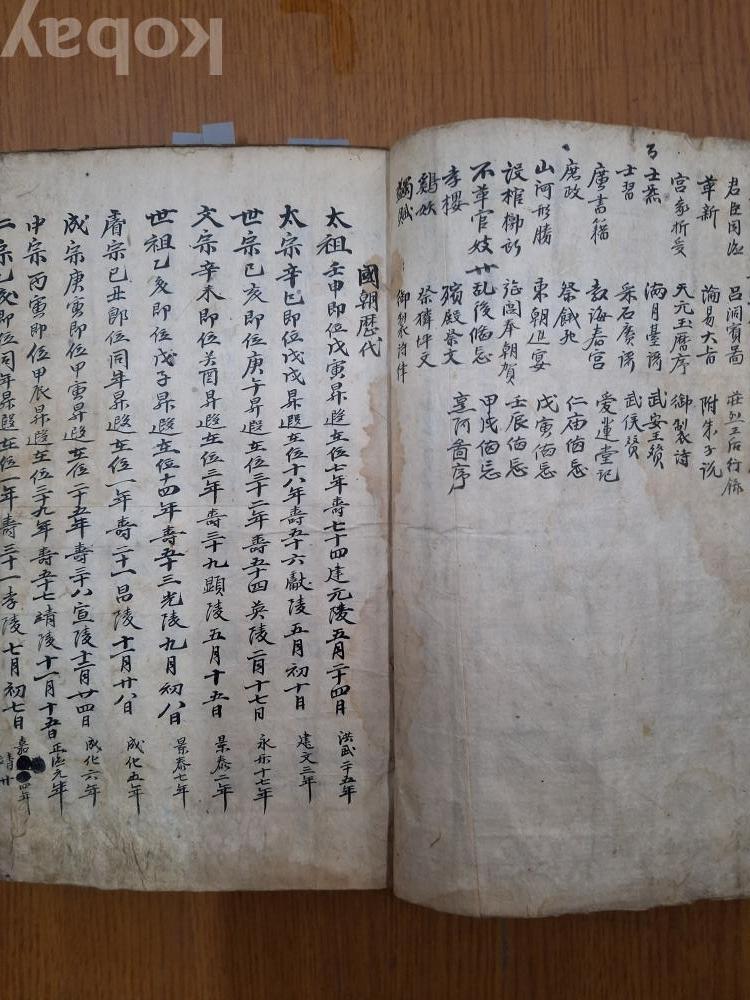 君臣同
呂洞賓啚
莊烈王后行錄
革新
瀹易大旨
附朱子説
宮家折受
天元玉曆序
御製詩
士燕
滿月臺谚
武安王贊
士習
采石廣谚
武侯贊
廣書籍
敎誨春宮
愛蓮堂記
庶政
祭餓死
仁庙俻忘
山河形勝
東朝進宴
戊寅俻忘
設棺槨
壬辰俻忘
不革官妓
廿乱後俻忘
甲戌俻忘
李櫻
殯殿祭文
鷄妖
祭
文
蠲賦
御製詩件
國朝歷代
太祖 壬申即位戊寅昇遐在位七年壽七十四建元陵五月二十四日 洪武二十五年
太宗 辛巳即位戊戌昇遐在位十八年壽五十六獻陵五月初十日 建文三年
世宗 己亥即位庚午昇遐在位三十二年壽五十四英陵二月十七日 永乐十七年
文宗 辛未即位癸酉昇遐在位三年壽三十九顯陵五月十五日 景泰二年
世祖 乙亥即位戊子昇遐在位十四年壽五十三光陵九月初八日 景泰七年
睿宗 己丑即位同年昇遐在位一年壽二十一昌陵十一月廿八日 成化五年
成宗 庚寅即位甲寅昇遐在位二十五年壽三十八宣陵十二月廿四日 成化六年
中宗 丙寅即位甲辰昇遐在位三十九年壽五十七靖陵十一月十五日 正德元年
仁宗 乙亥即位同年昇遐在位一年壽三十一孝陵七月初七日 嘉靖廿四年
kobay